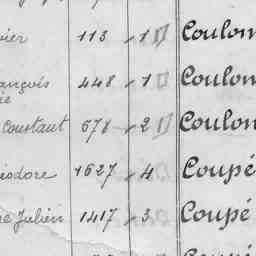 113 1 Coulon
448 1 Coulon
Constant 678 2 Coulon
1627 4 Coupé
Julien 1417 3 Coupé